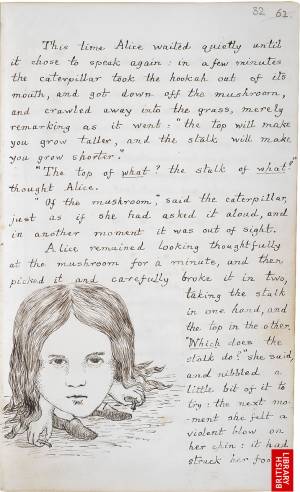 32 61.
This time Alice waited quietly until
it chose to speak again: in a few minutes
the caterpillar took the hookah out of its
mouth, and got down off the mushroom,
and crawled away into the grass, merely
remarking as it went: "the top will make
you grow taller, and the stalk will make
you grow shorter."
"The top of what? the stalk of what?"
thought Alice.
"Of the mushroom," said the caterpillar,
just as if she had asked it aloud, and
in another moment it was out of sight.
Alice remained looking thoughtfully
at the mushroom for a minute, and then
picked it and carefully broke it in two,
taking the stalk
in one hand, and
the top in the other.
"Which does the
stalk do?" she said,
and nibbled a
little bit of it to
try: the next mo-
ment she felt a
violent blow on
her chin: it had
struck her foo
BRITISH
LIBRARY